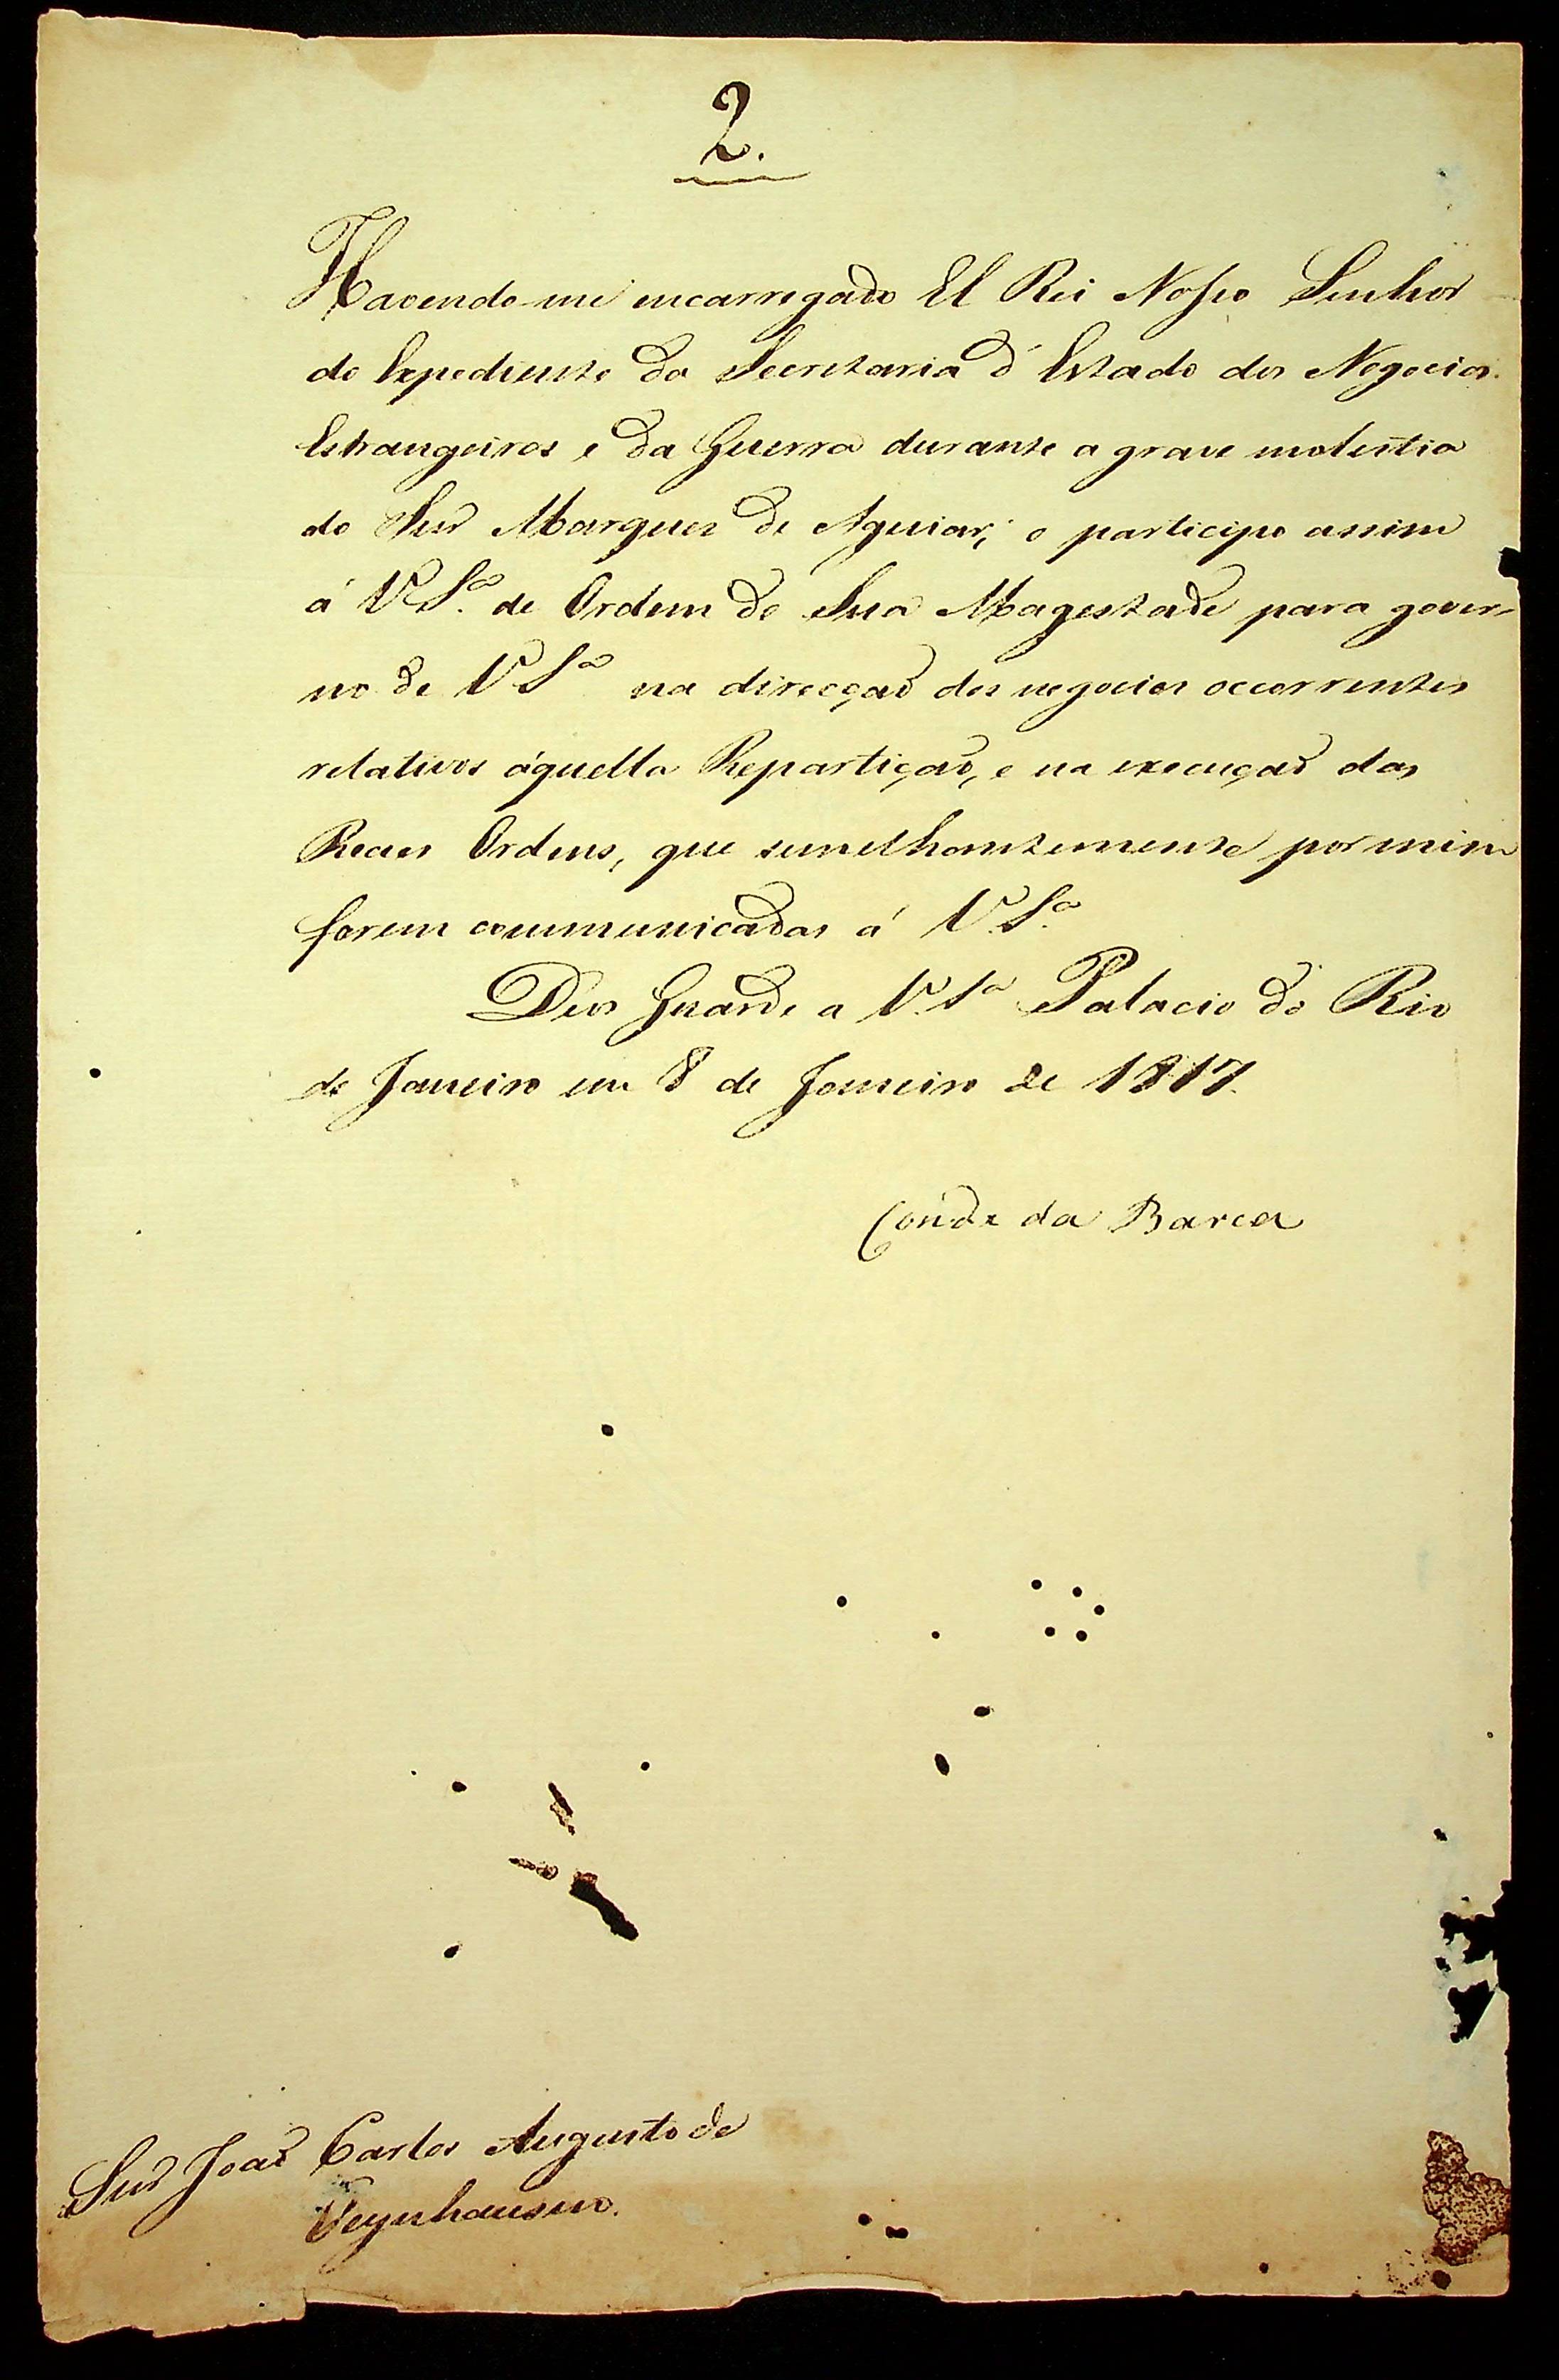 2.
Havendo-me encarregado El Rei Nosso Senhor
do Expediente da Secretaria d'Estado dos Negocios
Estrangeiros e da Guerra durante a grave molestia
do Snr Marquez de Aguiar; o participo assim
á V.Sª. de Ordem de Sua Magestade para gover-
no de V.Sª na direcçaõ dos negocios occorrentes
relativos áquella Repartiçaõ, e na execuçaõ das
Reaes Ordens, que semelhantemente por mim
forem communicadas á V.Sª.
Deos Guarde a V.Sª Palacio do Rio
de Janeiro em 8 de Janeiro de 1817.
Conde da Barca
Snr Joaõ Carlos Augusto de
Oeynhausen.